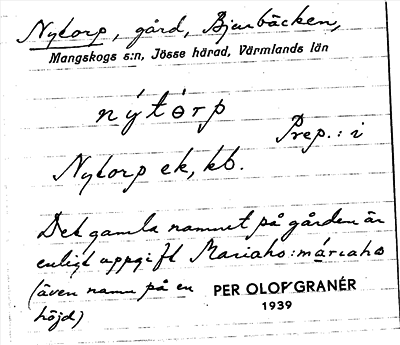 Nytorp, gård, Bjurbäcken,
Mangskogs s:n, Jösse härad, Värmlands län
nýtòrp
Prep.: i
Nytorp ek, kb.
Det gamla namnet på gården är
enligt uppgift Mariaho: máriaho
(även namn på en
höjd)
PER OLOF GRANÉR
1939